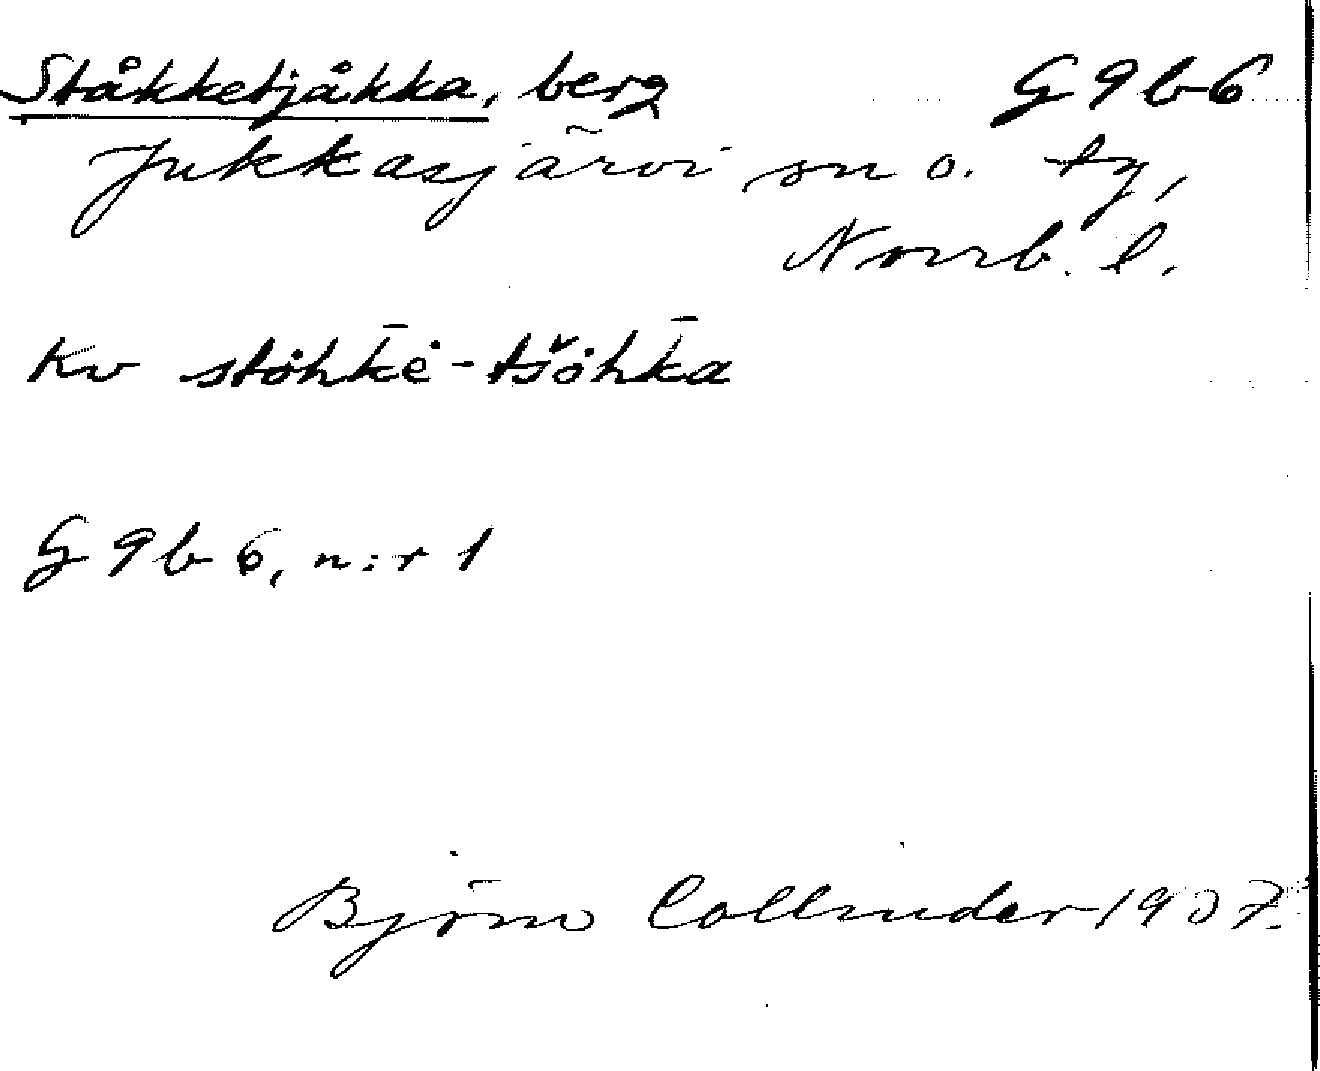 Ståkketjåkka, berg G9b6
Jukkasjärvi sn o. tg,
Norrb. l.
Kv stȯhk̄ė-tšȯhk̄a
G9b6, n:r 1
Björn Collinder 1907.